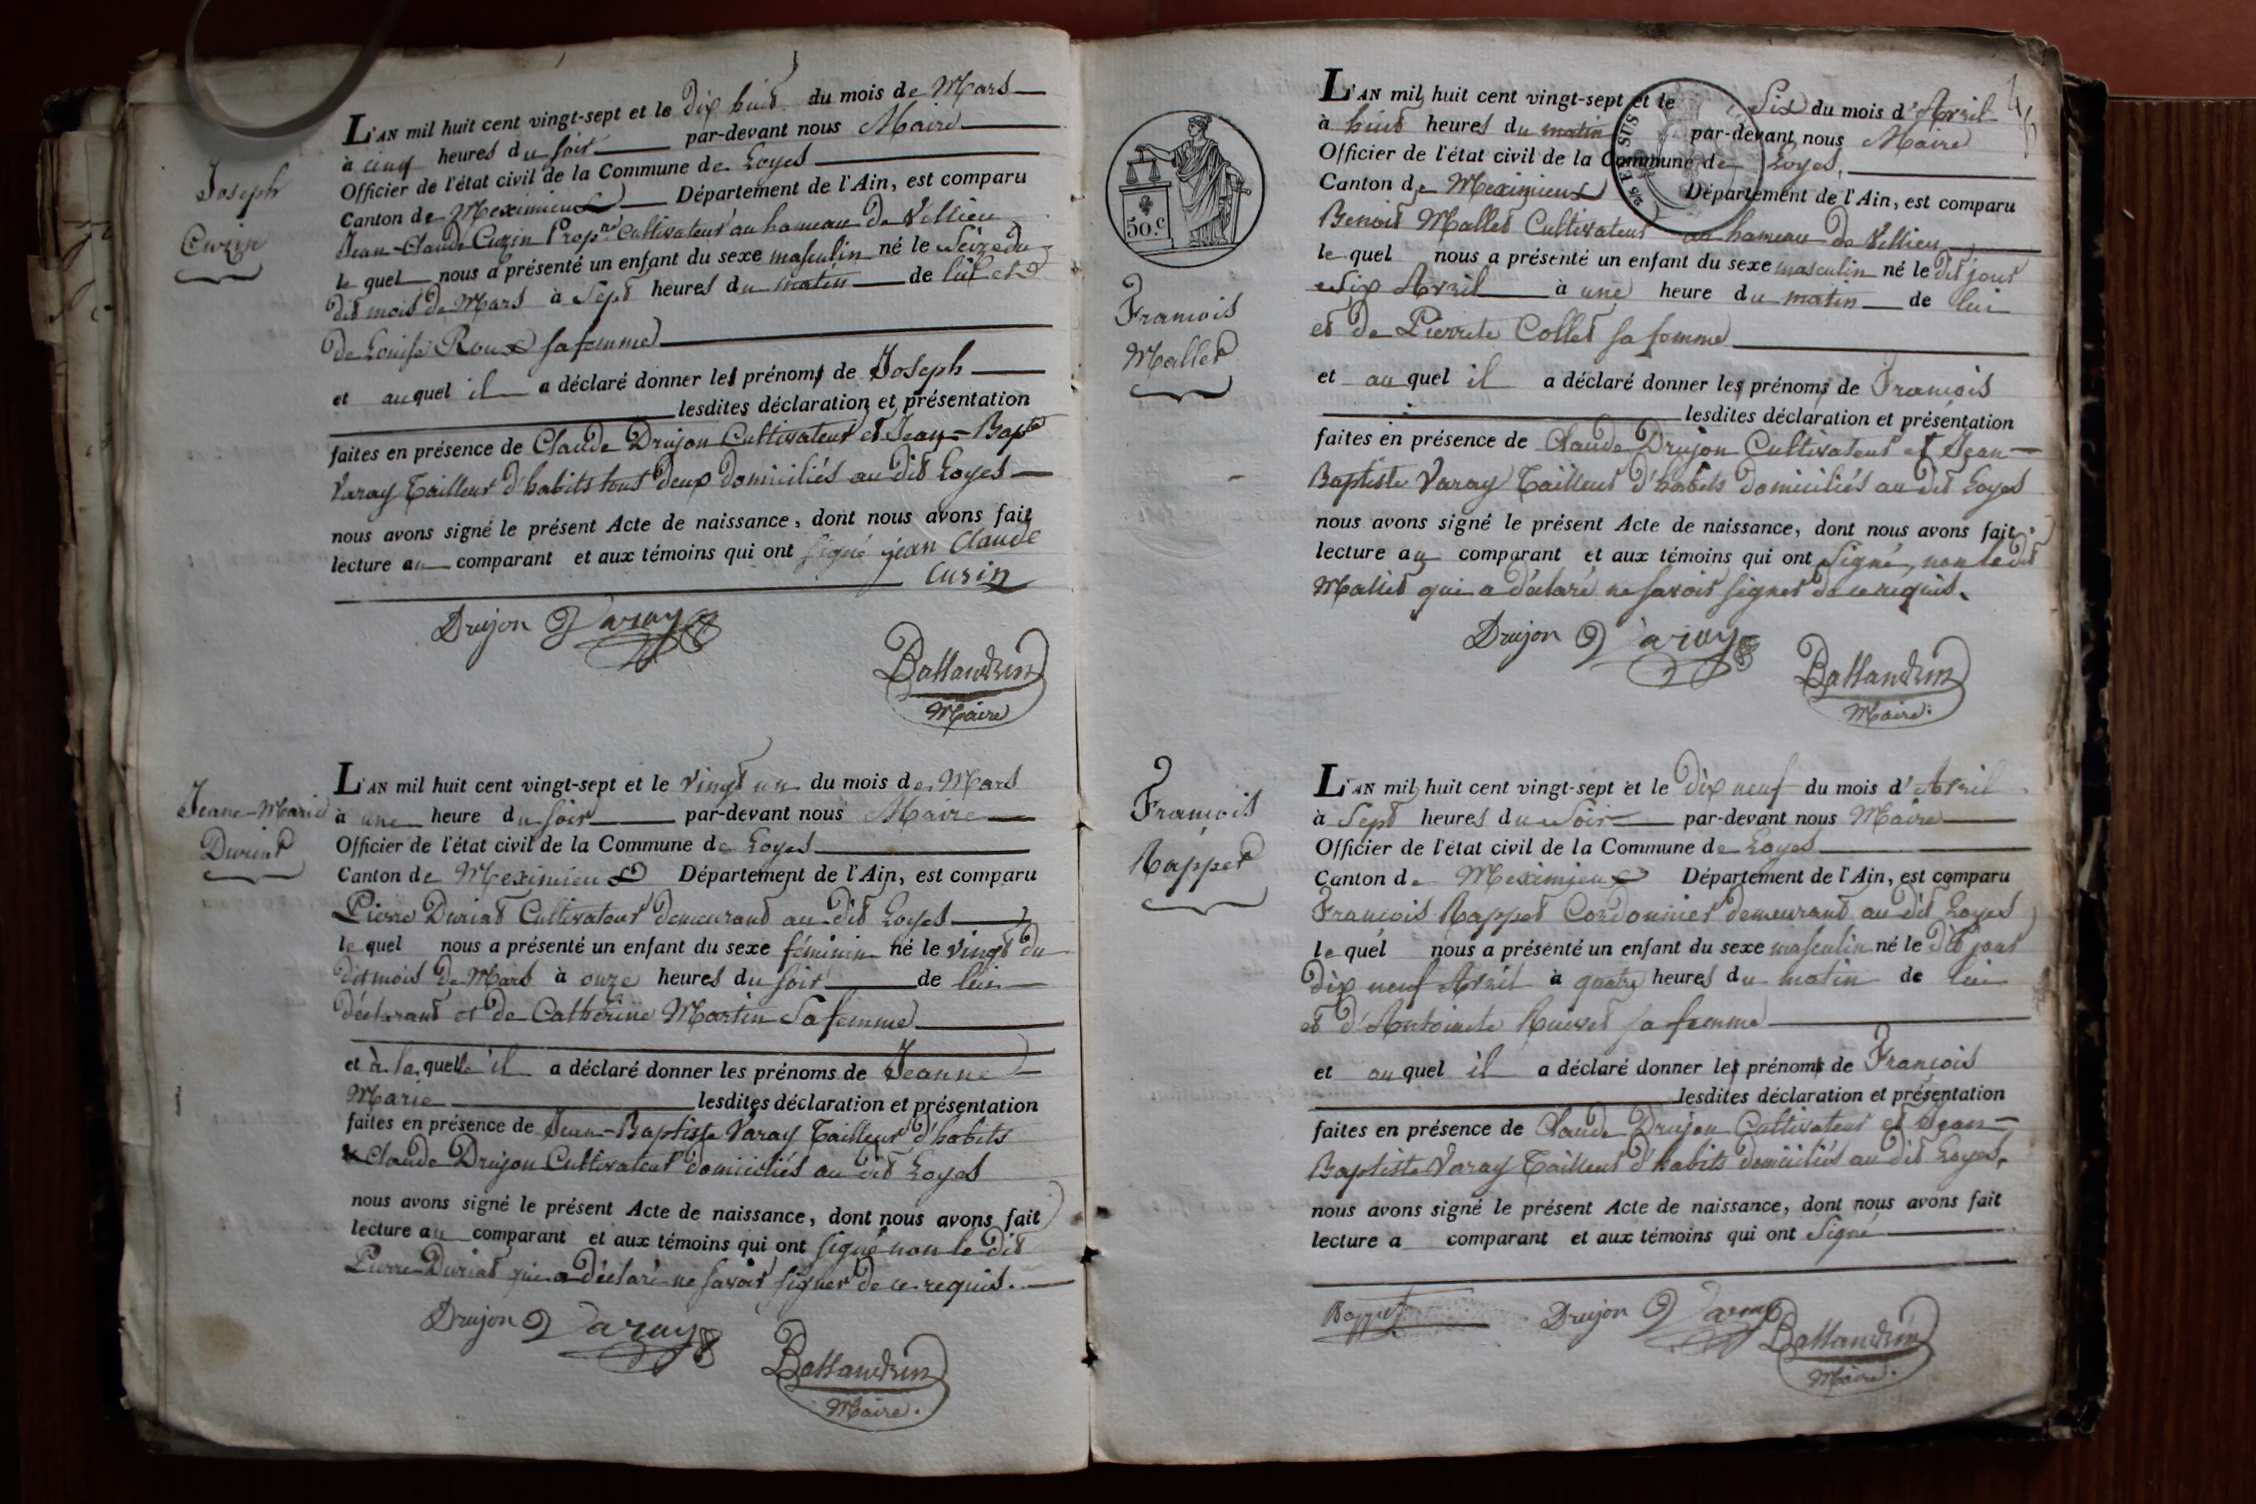 Joseph
Curin
L'AN mil huit cent vingt-sept et le dix huit du mois de Mars
à cinq heures du soir par-devant nous Maire
Officier de l'état civil de la Commune de Loyes
Canton de Meximieux Département de l'Ain, est comparu
Jean-Claude Curin Propre Cultivateur au hameau de Villieu
le quel nous a présenté un enfant du sexe masculin né le Seize du
dit mois de Mars à Sept heures du matin de lui et
de Louise Roux sa femme
et au quel il a déclaré donner les prénoms de Joseph
lesdites déclaration et présentation
faites en présence de Claude Drujon Cultivateur et Jean-Bapte
Varay Tailleur d'habits tous deux domiciliés au dit Loyes
nous avons signé le présent Acte de naissance, dont nous avons fait
lecture au comparant et aux témoins qui ont signé jean Claude
Curin
Drujon Varay
Ballandrin
Maire
Jeane-Marie
Duriat
L'AN mil huit cent vingt-sept et le vingt un du mois de Mars
à une heure du soir par-devant nous Maire
Officier de l'état civil de la Commune de Loyes
Canton de Meximieux Département de l'Ain, est comparu
Pierre Duriat Cultivateur demeurant au dit Loyes
le quel nous a présenté un enfant du sexe féminin né le vingt du
dit mois de Mars à onze heures du soir de lui
déclarant et de Catherine Martin Sa femme
et à la quelle il a déclaré donner les prénoms de Jeanne
Marie lesdites déclaration et présentation
faites en présence de Jean-Baptiste Varay Tailleur d'habits
& Claude Drujon Cultivateur domiciliés au dit Loyes
nous avons signé le présent Acte de naissance, dont nous avons fait
lecture au comparant et aux témoins qui ont signé non le dit
Pierre Duriat qui a déclaré ne savoir signer de ce requis.
Drujon Varay
Ballandrin
Maire.
50.C
François
Mallet
L'AN mil huit cent vingt-sept et le Six du mois d'Avril
à huit heures du matin par-devant nous Maire
Officier de l'état civil de la Commune de Loyes,
Canton de Meximieux Département de l'Ain, est comparu
Benoit Mallet Cultivateur au hameau de Villieu
le quel nous a présenté un enfant du sexe masculin né le dit jour
Six Avril à une heure du matin de lui
et de Pierrete Collet sa femme
et au quel il a déclaré donner les prénoms de François
lesdites déclaration et présentation
faites en présence de Claude Drujon Cultivateur et Jean-
Baptiste Varay Tailleur d'habits domiciliés au dit Loyes
nous avons signé le présent Acte de naissance, dont nous avons fait
lecture au comparant et aux témoins qui ont Signé, non le dit
Mallet qui a déclaré ne savoir signer de ce requis.
Drujon Varay
Ballandrin
Maire.
François
Rappet
L'AN mil huit cent vingt-sept et le dix neuf du mois d'Avril
à Sept heures du Soir par-devant nous Maire
Officier de l'état civil de la Commune de Loyes
Canton de Meximieux Département de l'Ain, est comparu
François Rappet Cordonnier demeurant au dit Loyes
le quel nous a présenté un enfant du sexe masculin né le dit jour
dix neuf Avril à quatre heures du matin de lui
et d'Antoinete sa femme
et au quel il a déclaré donner les prénoms de François
lesdites déclaration et présentation
faites en présence de Claude Drujon Cultivateur et Jean-
Baptiste Varay Tailleur d'habits domiciliés au dit Loyes,
nous avons signé le présent Acte de naissance, dont nous avons fait
lecture a comparant et aux témoins qui ont Signé
Rappet Drujon Varay
Ballandrin
Maire.